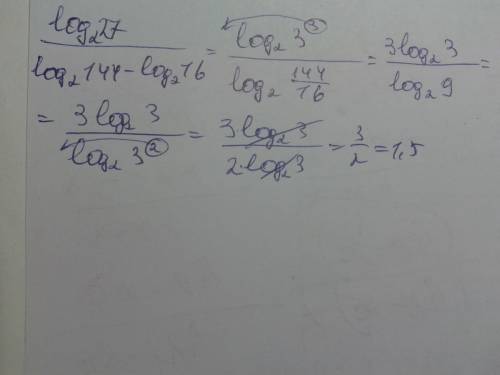 log₂27 / (log₂144 - log₂16) = log₂3³ / log₂(144/16) = 3log₂3 / log₂9 =
= 3log₂3 / log₂3² = 3log₂3 / 2log₂3 = 3/2 = 1,5